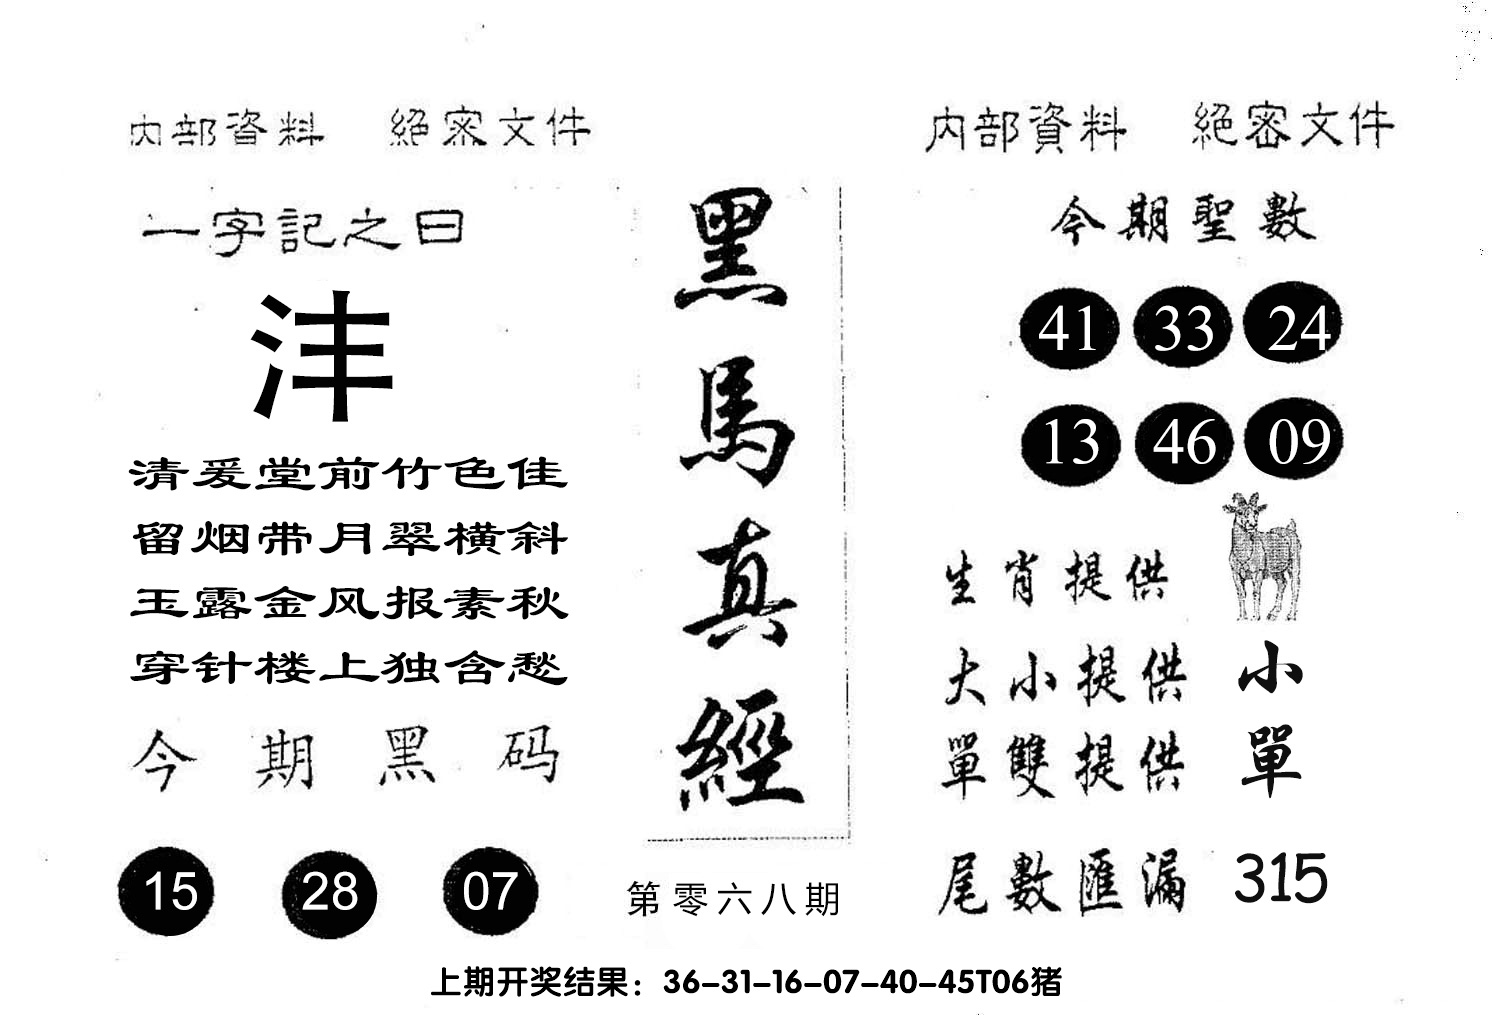 内部資料 絕密文件
一字記之曰
沣
清爰堂前竹色佳
留烟带月翠横斜
玉露金风报素秋
穿针楼上独含愁
今期黑码
15 28 07
黑馬真經
第零六八期
内部資料 絕密文件
今期聖數
41 33 24
13 46 09
生肖提供
大小提供 小
單雙提供 單
尾數匯漏 315
上期开奖结果：36-31-16-07-40-45T06猪